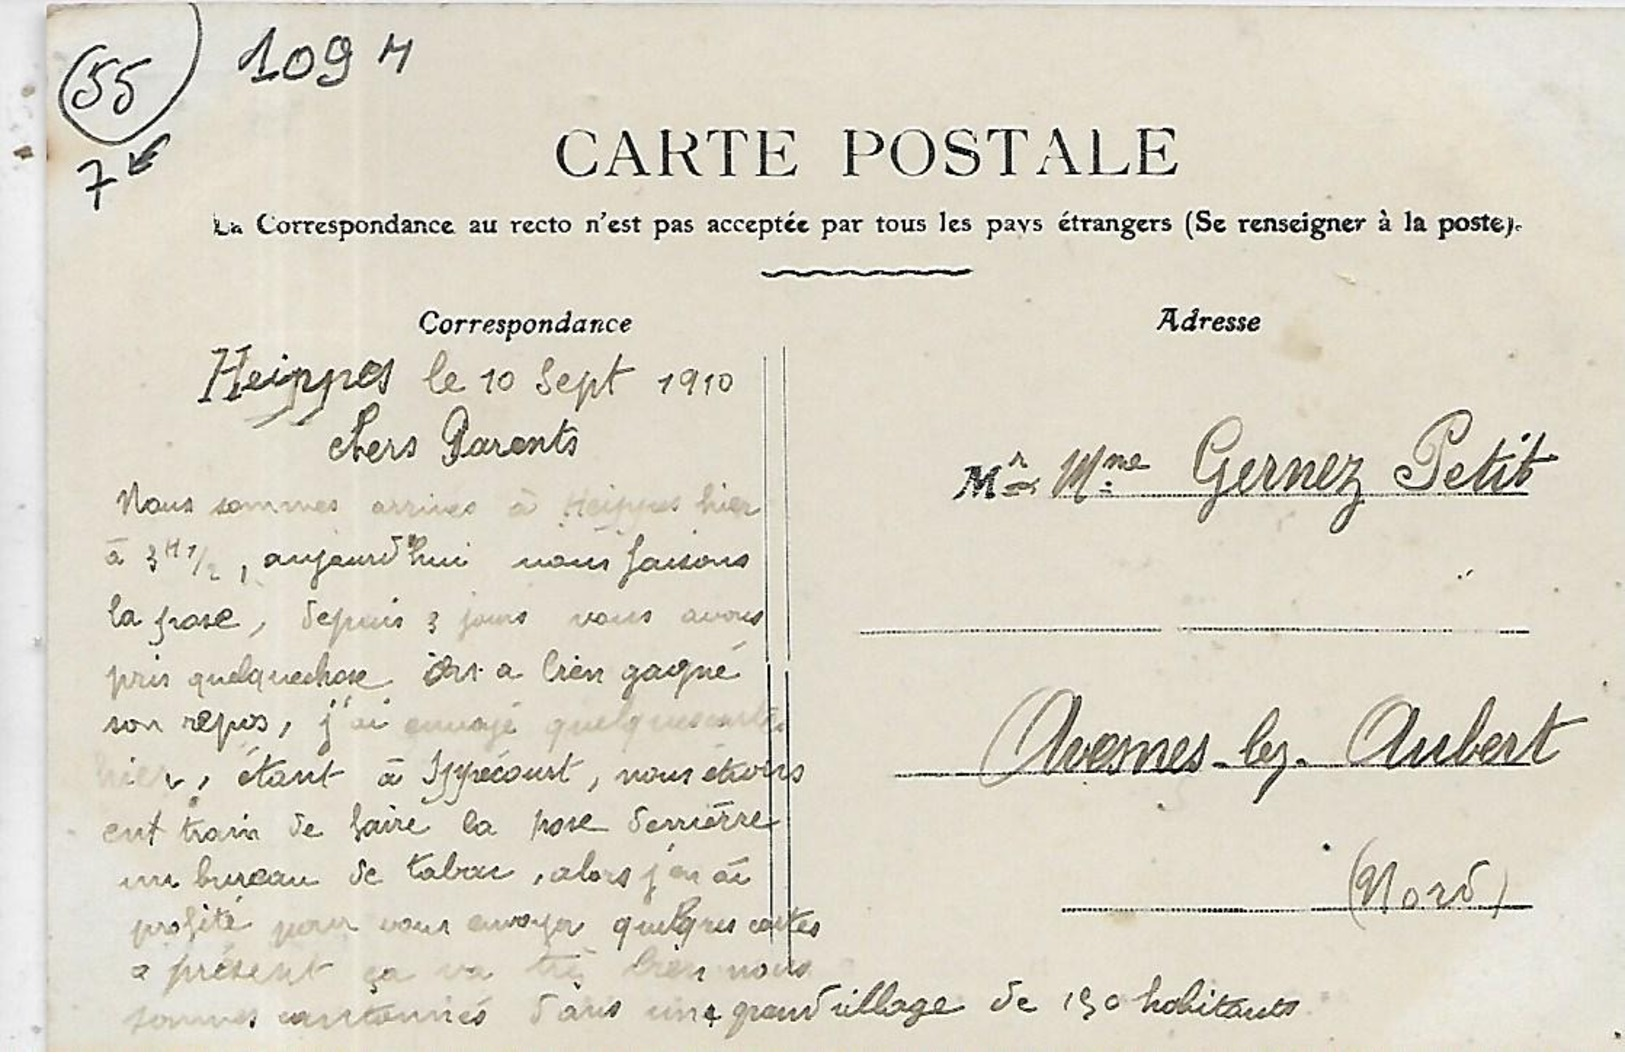 55
109 M
7
CARTE POSTALE
La Correspondance au recto n'est pas acceptée par tous les pays étrangers (Se renseigner à la poste).
Correspondance
Adresse
Heippes le 10 Sept 1910
chers Parents
Nous sommes arrivés à Heippes hier
à 3 H 1/2, aujourd'hui nous faisons
la pose, depuis 3 jours nous avons
pris quelquechose on a bien gagné
son repos, j'ai envoyé quelques cartes
hier, étant à Ippécourt, nous étions
ent train de faire la pose derrièrre
un bureau de tabac, alors j'en ai
profité pour vous envoyer quelques cartes
a présent ça va très bien nous
sommes cantonnés dans une grand village de 150 habitants
Mr & Mme Gernez Petit
Avesnes-lez-Aubert
(Nord)